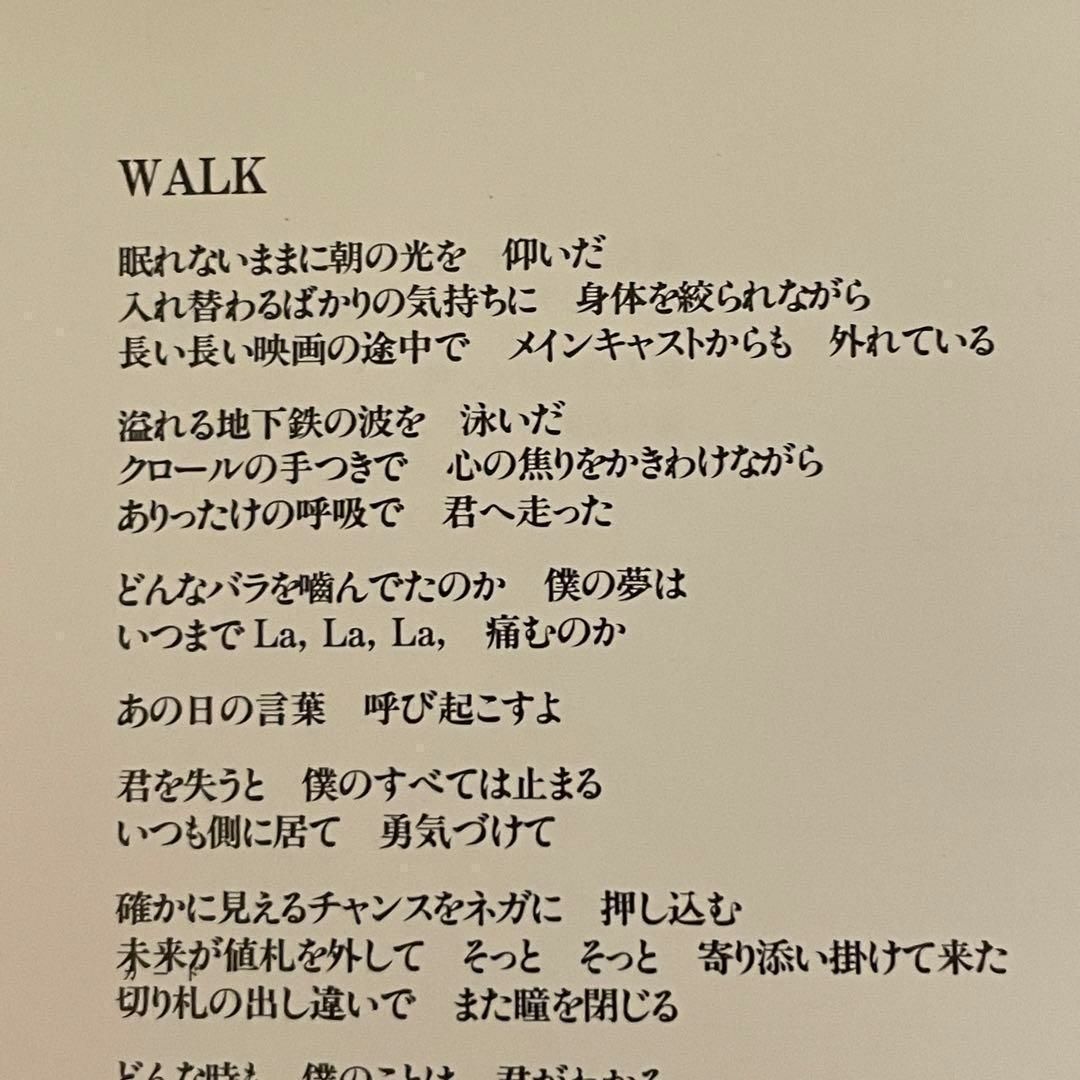 WALK
眠れないままに朝の光を　仰いだ
入れ替わるばかりの気持ちに　身体を絞られながら
長い長い映画の途中で　メインキャストからも　外れている
溢れる地下鉄の波を　泳いだ
クロールの手つきで　心の焦りをかきわけながら
ありったけの呼吸で　君へ走った
どんなバラを嚙んでたのか　僕の夢は
いつまで La, La, La,　痛むのか
あの日の言葉　呼び起こすよ
君を失うと　僕のすべては止まる
いつも側に居て　勇気づけて
確かに見えるチャンスをネガに　押し込む
未来が値札を外して　そっと　そっと　寄り添い掛けて来た
カード
切り札の出し違いで　また瞳を閉じる
どんな時も　僕のことは　君がわかる